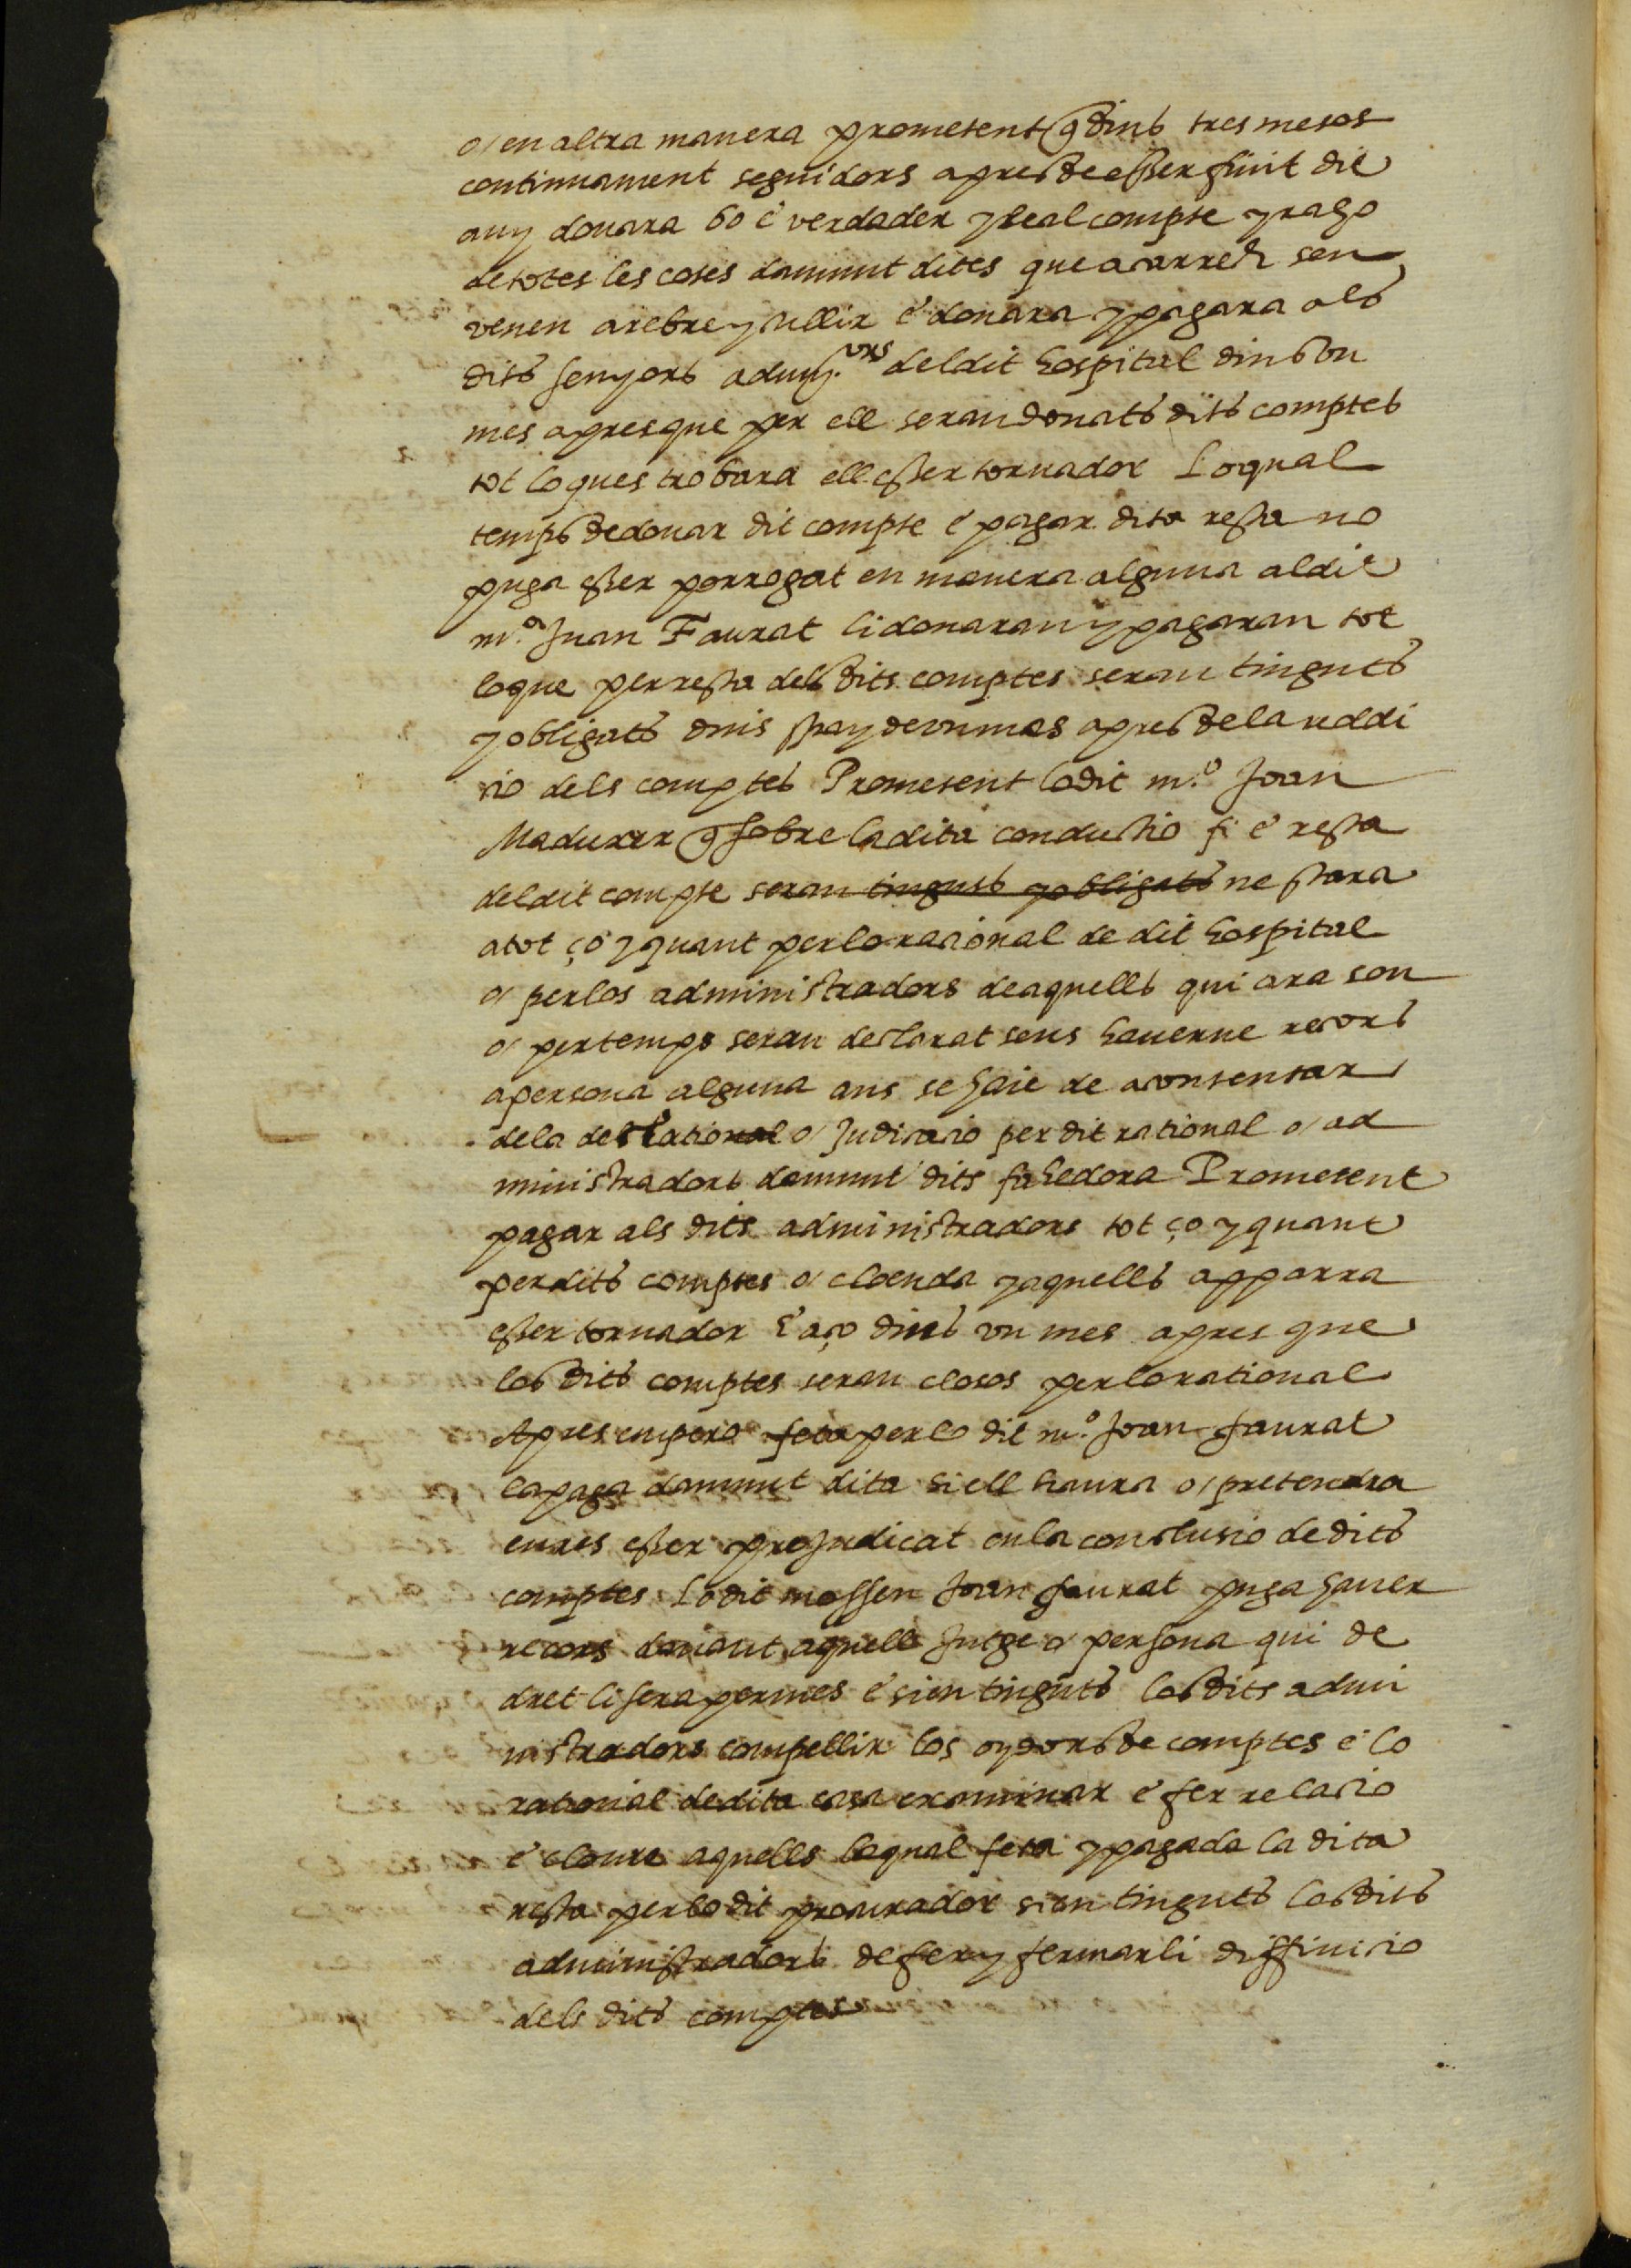 o/ en altra manera prometent q̃ dins tres mesos
continuament seguidors apres de esser finit dit
any donara bo é verdader y leal compte y raho
de totes les coses damunt dites que a carrech seu
venen a rebre y cullir é donara y pagara als
dits senyors adm.ors del dit hospital dins vn
mes apres que per ell seran donats dits comptes
tot lo ques trobara ell esser tornador Lo qual
temps de donar dit compte é pagar dita resta no
puga esser porrogat en manera alguna al dit
m.º Juan Faurat li donaran y pagaran tot
lo que per resta dels dits comptes seran tinguts
y obligats dins spay de vn mes apres de la reddi
cio dels comptes Prometent lo dit m.º Joan
Madurer q̃ sobre la dita conductio fi é resta
del dit compte seran tinguts y obligats ne stara
a tot ço y quant per lo racional de dit hospital
o/ per los administradors de aquells qui ara son
o/ per temps seran declarat sens hauerne recors
a persona alguna ans se haie de acontentar
de la declaratio o/ Judicacio per dit rational o/ ad
ministradors damunt dits fahedora Prometent
pagar als dits administradors tot ço y quant
per dits comptes o/ cloenda y aquells apparra
esser tornador E aço dins vn mes apres que
los dits comptes seran closos per lo rational
Apres empero feta per lo dit m.º Joan faurat
la paga damunt dita si ell haura o/ pretendra
en res esser prejudicat en la conclusio de dits
comptes Lo dit mossen Joan faurat puga hauer
recors dauant aquell Jutge o/ persona qui de
dret li sera permes é sien tinguts los dits admi
nistradors compellir los oydors de comptes é lo
rational de dita casa examinar é fer relacio
é cloure aquells la qual feta y pagada la dita
resta per lo dit procurador sien tinguts los dits
administradors de fer y fermarli diffinicio
dels dits comptes